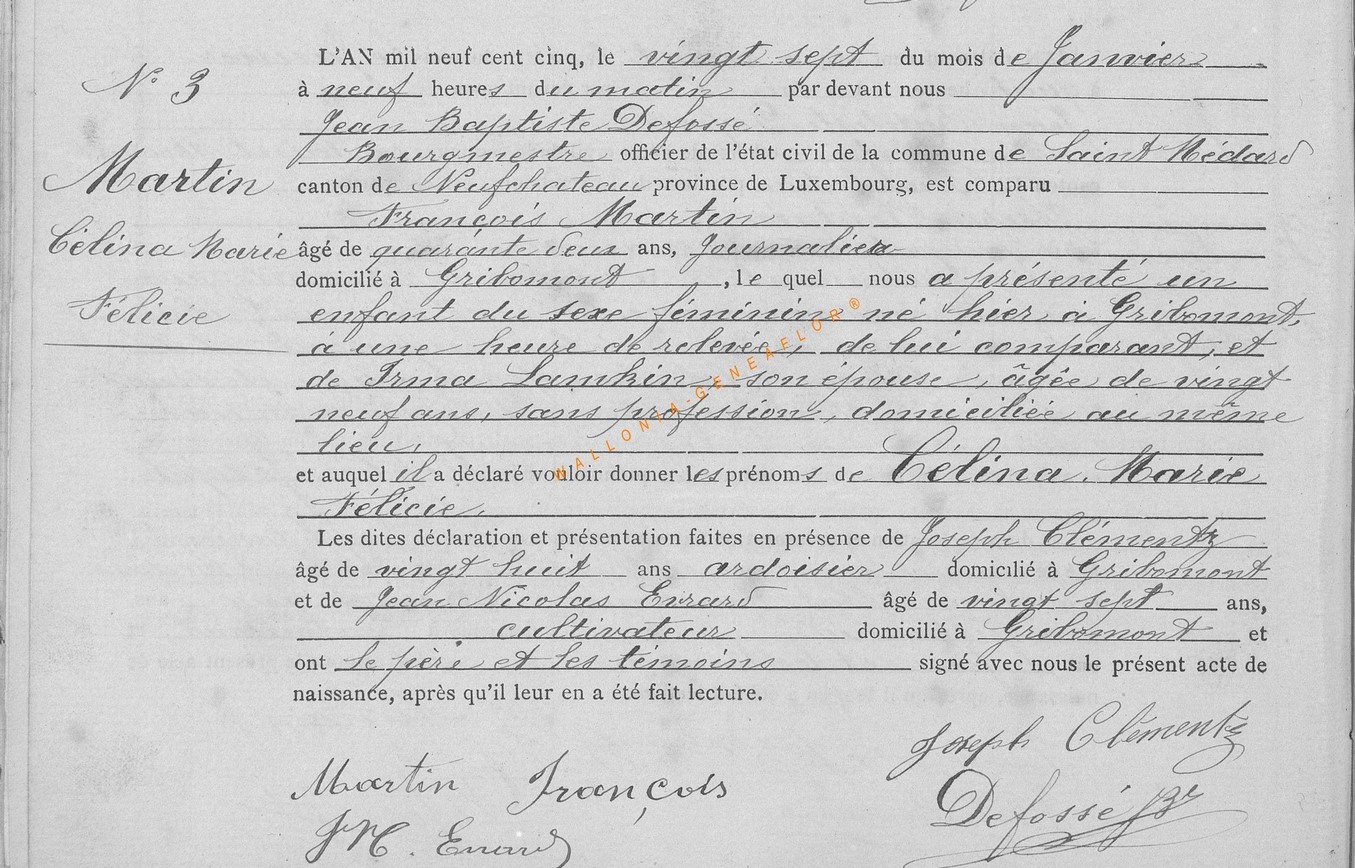 N° 3
Martin
Célina Marie
Félicie
L'AN mil neuf cent cinq, le vingt sept du mois de Janvier
à neuf heures du matin par devant nous
Jean Baptiste Defossé
Bourgmestre officier de l'état civil de la commune de Saint Médard
canton de Neufchateau province de Luxembourg, est comparu
François Martin
âgé de quarante deux ans, Journalier
domicilié à Gribomont, le quel nous a présenté un
enfant du sexe féminin né hier à Gribomont,
à une heure de relevée, de lui comparant, et
de Irma Lamkin, son épouse, âgée de vingt
neuf ans, sans profession, domiciliée au même
lieu,
et auquel il a déclaré vouloir donner les prénoms de Célina, Marie
Félicie.
Les dites déclaration et présentation faites en présence de Joseph Clémentz
âgé de vingt huit ans ardoisier domicilié à Gribomont
et de Jean Nicolas Evrard âgé de vingt sept ans,
cultivateur domicilié à Gribomont et
ont le père et les témoins signé avec nous le présent acte de
naissance, après qu'il leur en a été fait lecture.
Joseph Clémentz
Martin François
Defossé JB
J N. Evrard
WALLONIA-GENEAFLOR®